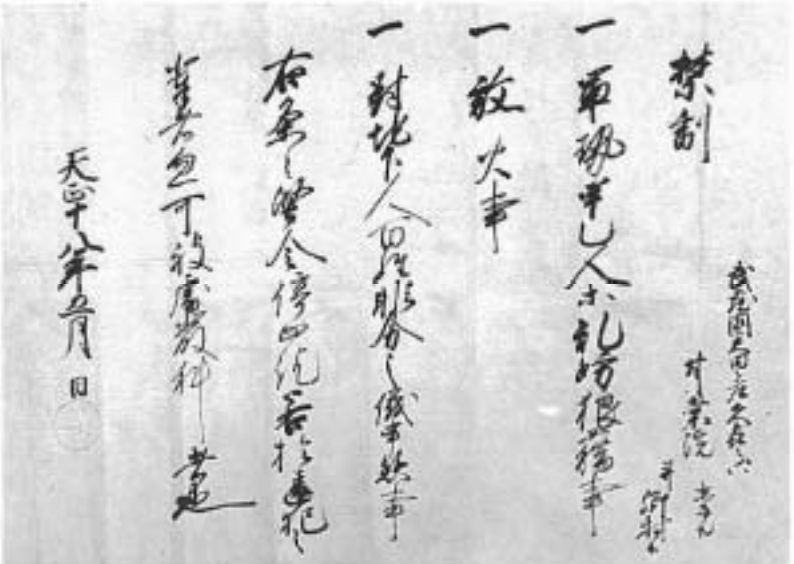 武蔵国太田庄久喜
甘棠院
并郷村
禁制
一 軍勢甲乙人等乱妨狼藉事
一 放火事
一 対地下人百姓非分之儀申懸事
右条々堅令停止訖若於違犯之
輩者忽可被処厳科者也
天正十八年五月 日